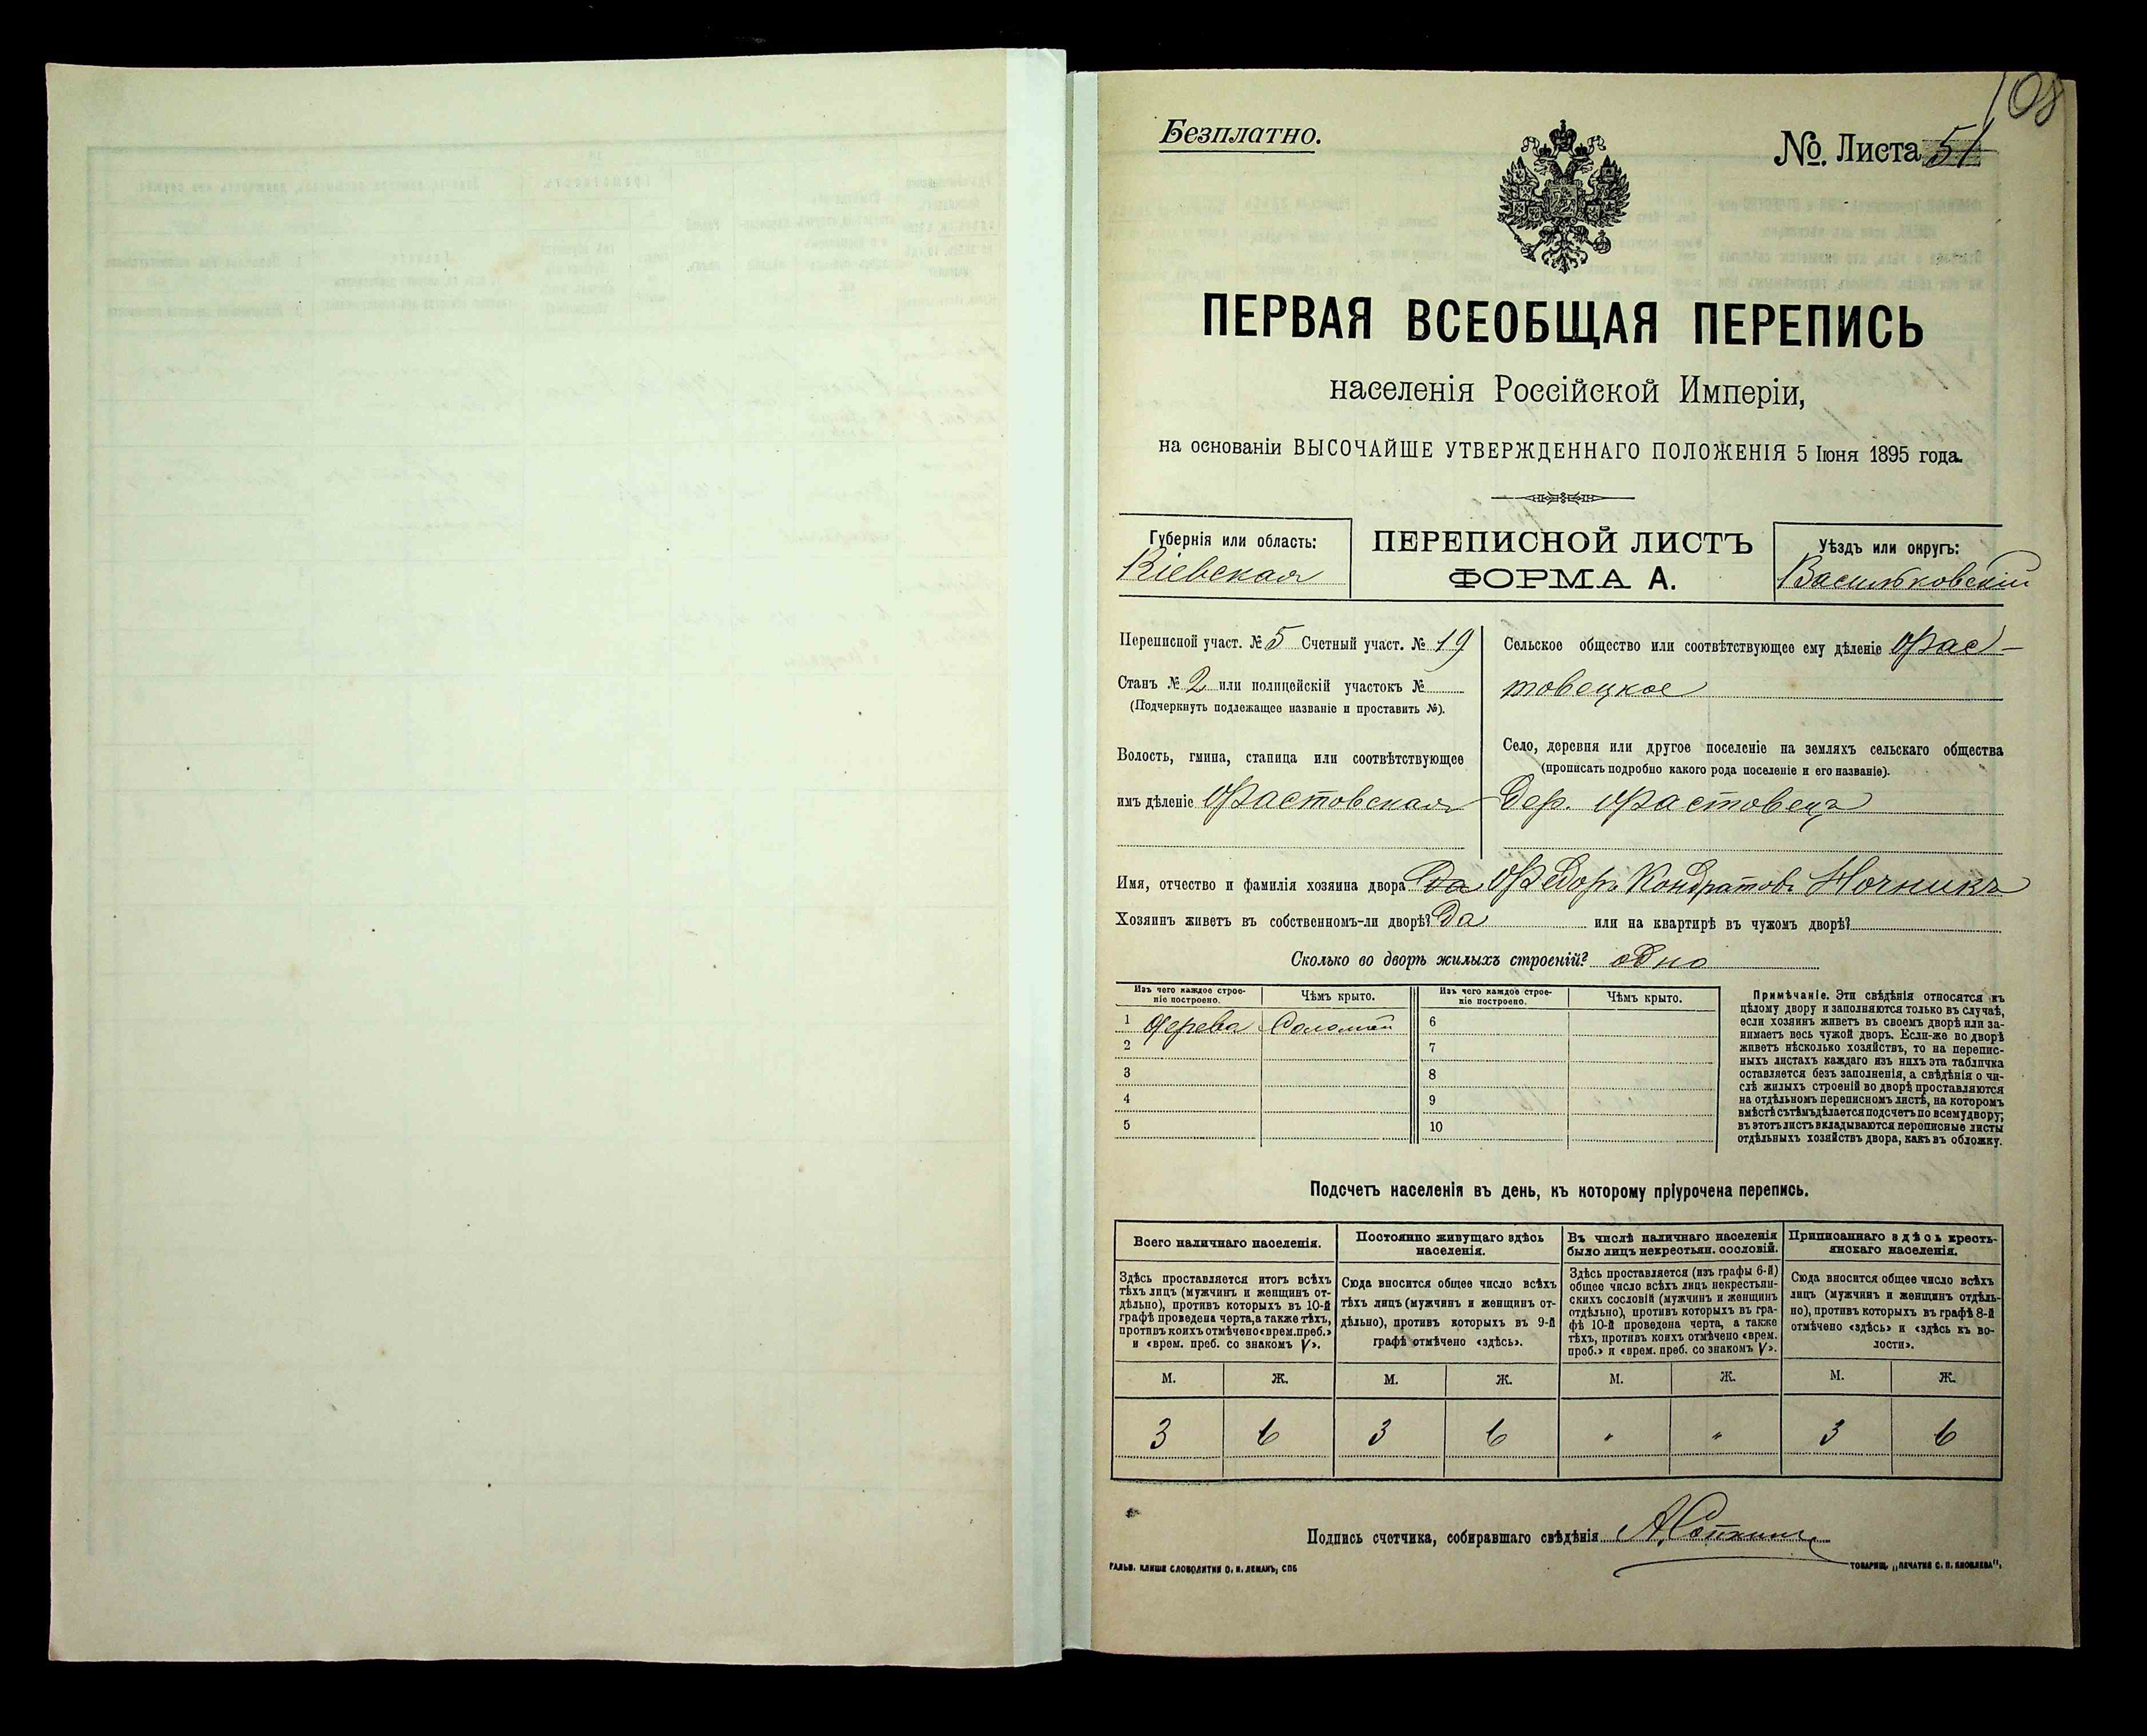 108
Безплатно.
№. Листа 51
ПЕРВАЯ ВСЕОБЩАЯ ПЕРЕПИСЬ
населенія Россійской Имперіи,
на основаніи ВЫСОЧАЙШЕ УТВЕРЖДЕННАГО ПОЛОЖЕНІЯ 5 Іюня 1895 года.
Губернія или область:
Кіевская
ПЕРЕПИСНОЙ ЛИСТЪ
ФОРМА А.
Уѣздъ или округъ:
Васильковскій
Переписной участ. № 5 Счетный участ. № 19
Станъ № 2 или полицейскій участокъ №
(Подчеркнуть подлежащее названіе и проставить №).
Волость, гмина, станица или соотвѣтствующее
имъ дѣленіе Фастовская
Сельское общество или соотвѣтствующее ему дѣленіе Фас-
товецкое
Село, деревня или другое поселеніе на земляхъ сельскаго общества
(прописать подробно какого рода поселеніе и его названіе).
Дер. Фастовецъ
Имя, отчество и фамилія хозяина двора Да Фёдоръ Кондратовъ Ночникъ
Хозяинъ живетъ въ собственномъ-ли дворѣ? Да или на квартирѣ въ чужомъ дворѣ?
Сколько во дворѣ жилыхъ строеній? одно
Изъ чего каждое строе-
ніе построено.
Чѣмъ крыто.
Изъ чего каждое строе-
ніе построено.
Чѣмъ крыто.
1 Дерева Соломой
2
3
4
5
6
7
8
9
10
Примѣчаніе. Эти свѣдѣнія относятся къ
цѣлому двору и заполняются только въ случаѣ,
если хозяинъ живетъ въ своемъ дворѣ или за-
нимаетъ весь чужой дворъ. Если-же во дворѣ
живетъ нѣсколько хозяйствъ, то на перепис-
ныхъ листахъ каждаго изъ нихъ эта табличка
оставляется безъ заполненія, а свѣдѣнія о чи-
слѣ жилыхъ строеній во дворѣ проставляются
на отдѣльномъ переписномъ листѣ, на которомъ
вмѣстѣ съ тѣмъ дѣлается подсчетъ по всему двору;
въ этотъ листъ вкладываются переписные листы
отдѣльныхъ хозяйствъ двора, какъ въ обложку.
Подсчетъ населенія въ день, къ которому пріурочена перепись.
Всего наличнаго населенія.
Здѣсь проставляется итогъ всѣхъ
тѣхъ лицъ (мужчинъ и женщинъ от-
дѣльно), противъ которыхъ въ 10-й
графѣ проведена черта, а также тѣхъ,
противъ коихъ отмѣчено «врем. преб.»
и «врем. преб. со знакомъ V».
Постоянно живущаго здѣсь
населенія.
Сюда вносится общее число всѣхъ
тѣхъ лицъ (мужчинъ и женщинъ от-
дѣльно), противъ которыхъ въ 9-й
графѣ отмѣчено «здѣсь».
Въ числѣ наличнаго населенія
было лицъ некрестьян. сословій.
Здѣсь проставляется (изъ графы 6-й)
общее число всѣхъ лицъ некрестьян-
скихъ сословій (мужчинъ и женщинъ
отдѣльно), противъ которыхъ въ гра-
фѣ 10-й проведена черта, а также
тѣхъ, противъ коихъ отмѣчено «врем.
преб.» и «врем. преб. со знакомъ V».
Приписаннаго здѣсь кресть-
янскаго населенія.
Сюда вносится общее число всѣхъ
лицъ (мужчинъ и женщинъ отдѣль-
но), противъ которыхъ въ графѣ 8-й
отмѣчено «здѣсь» и «здѣсь къ во-
лости».
М. Ж. М. Ж. М. Ж. М. Ж.
3 6 3 6 " " 3 6
Подпись счетчика, собиравшаго свѣдѣнія
ГАЛЬВ. КЛИШЕ СЛОВОЛИТНИ О. И. ЛЕМАНЪ, СПБ
ТОВАРИЩ. „ПЕЧАТНЯ С. П. ЯКОВЛЕВА“.